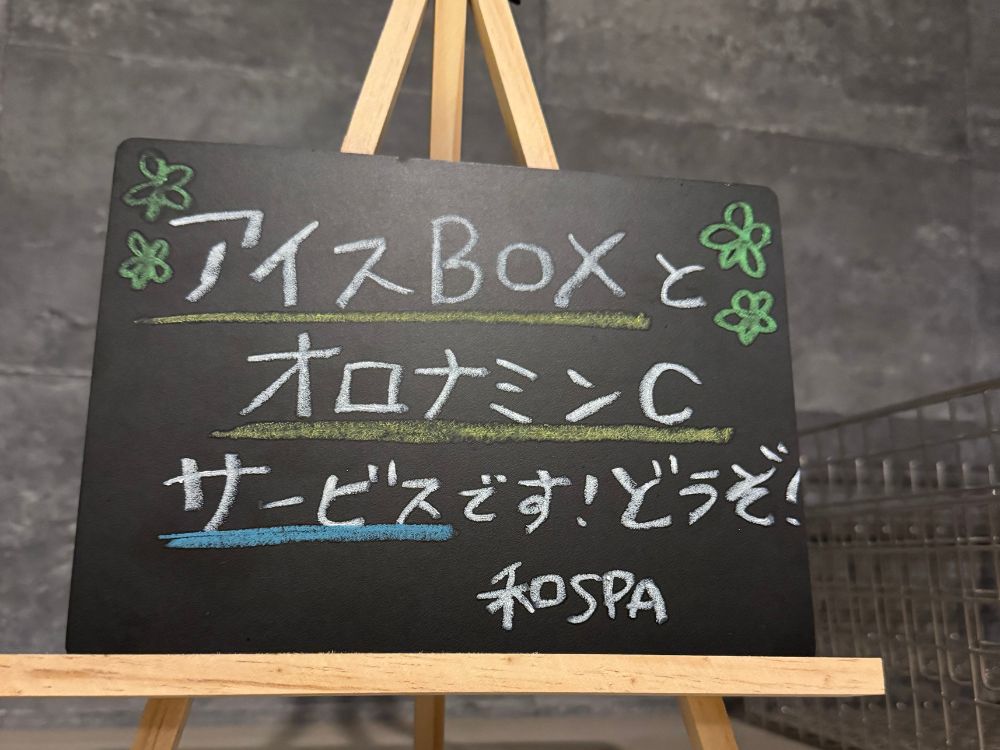 アイスBOXと
オロナミンC
サービスです!どうぞ!
和SPA